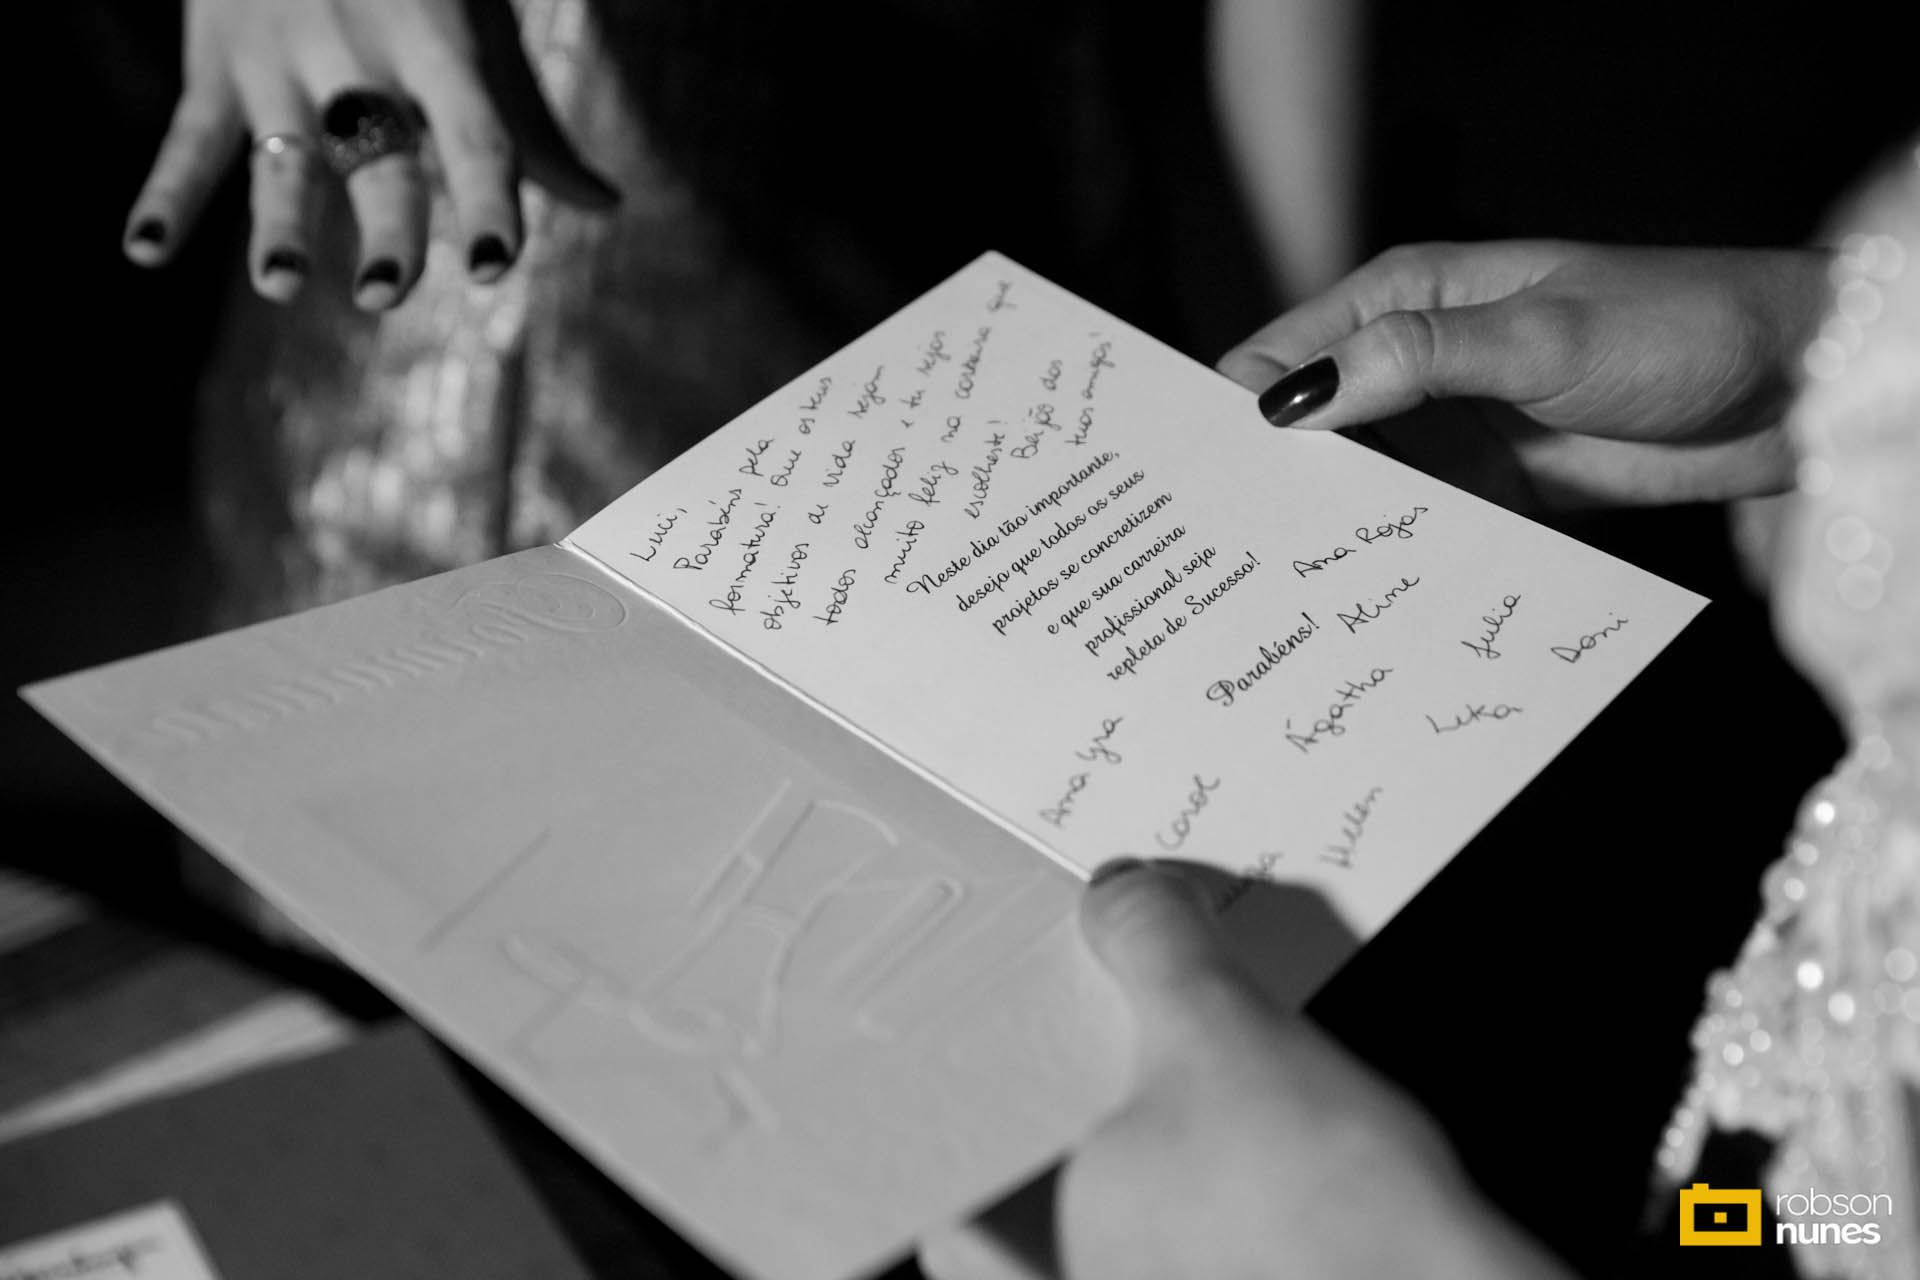 Luci,
Parabéns pela
formatura! Que os teus
objetivos de vida sejam
todos alcançados e tu sejas
muito feliz na carreira que
escolheste!
Beijão dos
teus amigos!
Neste dia tão importante,
desejo que todos os seus
projetos se concretizem
e que sua carreira
profissional seja
repleta de Sucesso!
Parabéns!
Ana Rojas
Aline
Julia
Doni
Ágatha
Leka
Ana Gra
Carol
Helen
robson
nunes